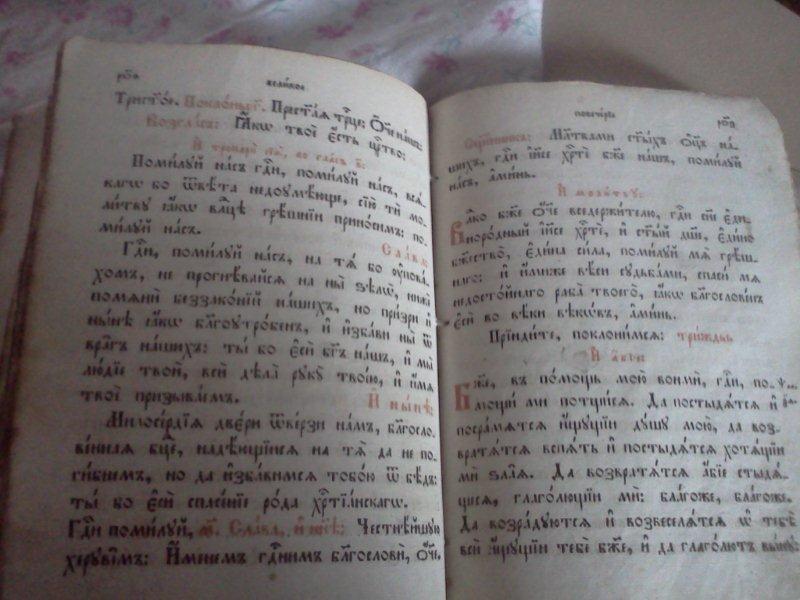 великое
Трист҃ое. Поклоны г҃. Прест҃ая трⷪ҇це: Ѻ҆́ч҃е на́шъ:
Возгласъ: Ꙗ҆́кѡ твоѐ є҆́сть црⷭ҇тво:
Поми́лꙋй на́съ гдⷭ҇и, поми́лꙋй на́съ, всѧ́-
кагѡ бо ѿвѣ́та недоꙋмѣ́юще, сїю̀ тѝ мо-
ли́твꙋ ꙗ҆́кѡ влⷣцѣ грѣ́шнїи прино́симъ: по-
ми́лꙋй на́съ.
Сла́ва:
Гдⷭ҇и, поми́лꙋй на́съ, на тѧ́ бо ᲂу҆пова́-
хомъ, не прогнѣ́вайсѧ на ны̀ ѕѣлѡ̀, нижѐ
помѧнѝ беззако́нїй на́шихъ, но при́зри и҆
ны́нѣ ꙗ҆́кѡ бл҃гоꙋтро́бенъ, и҆ и҆зба́ви ны̀ ѿ
вра̑гъ на́шихъ: ты́ бо є҆сѝ бг҃ъ на́шъ, и҆ мы̀
лю́дїе твоѝ, всѝ дѣла̀ рꙋкꙋ̀ твоє́ю, и҆ и҆́мѧ
твоѐ призыва́емъ.
И҆ ны́нѣ:
Милосе́рдїѧ две́ри ѿве́рзи на́мъ, бл҃госло-
ве́ннаѧ бц҃е, надѣ́ющїисѧ на тѧ̀ да не по-
ги́бнемъ, но да и҆зба́вимсѧ тобо́ю ѿ бѣ́дъ:
ты́ бо є҆сѝ спасе́нїе ро́да хрⷭ҇тїа́нскагѡ.
Гдⷭ҇и поми́лꙋй, м҃. Сла́ва, и҆ ны́нѣ: Честнѣ́йшꙋю
херꙋві̑мъ: И҆́менемъ гдⷭ҇нимъ благословѝ, Ѻ҆́ч҃е.
повече́рїе
Сщ҃е́нникъ: Мл҃твами ст҃ы́хъ ѻ҆ц҃ъ на́-
шихъ, гдⷭ҇и і҆и҃се хрⷭ҇тѐ бж҃е на́шъ, поми́лꙋй
на́съ, а҆ми́нь.
И҆ моли́твꙋ:
Влⷣко бж҃е ѻ҆́ч҃е вседержи́телю, гдⷭ҇и сн҃е є҆ди-
норо́дный і҆и҃се хрⷭ҇тѐ, и҆ ст҃ы́й дш҃е, є҆ди́но
бж҃ество̀, є҆ди́на си́ла, поми́лꙋй мѧ̀ грѣ́ш-
наго: и҆ и҆́миже вѣ́си сꙋдьба́ми, спасѝ мѧ̀
недосто́йнаго раба̀ твоего̀, ꙗ҆́кѡ благослове́нъ
є҆сѝ во вѣ́ки вѣкѡ́въ, а҆ми́нь.
Прїиди́те, поклони́мсѧ: три́жды
Бж҃е, въ по́мощь мою̀ вонмѝ, гдⷭ҇и, по-
мощи́ ми потщи́сѧ. Да постыдѧ́тсѧ и҆
посра́мѧтсѧ и҆́щꙋщїи дꙋ́шꙋ мою̀, да воз-
вратѧ́тсѧ вспѧ́ть и҆ постыдѧ́тсѧ хотѧ́щїи
мѝ ѕла̑ѧ. Да возвратѧ́тсѧ а҆́бїе стыдѧ́-
щесѧ, глаго́лющїи мѝ: бла́гоже, бла́гоже.
Да возра́дꙋютсѧ и҆ возвеселѧ́тсѧ ѡ҆ тебѣ̀
всѝ и҆́щꙋщїи тебѐ бж҃е, и҆ да глаго́лютъ вы́нꙋ: